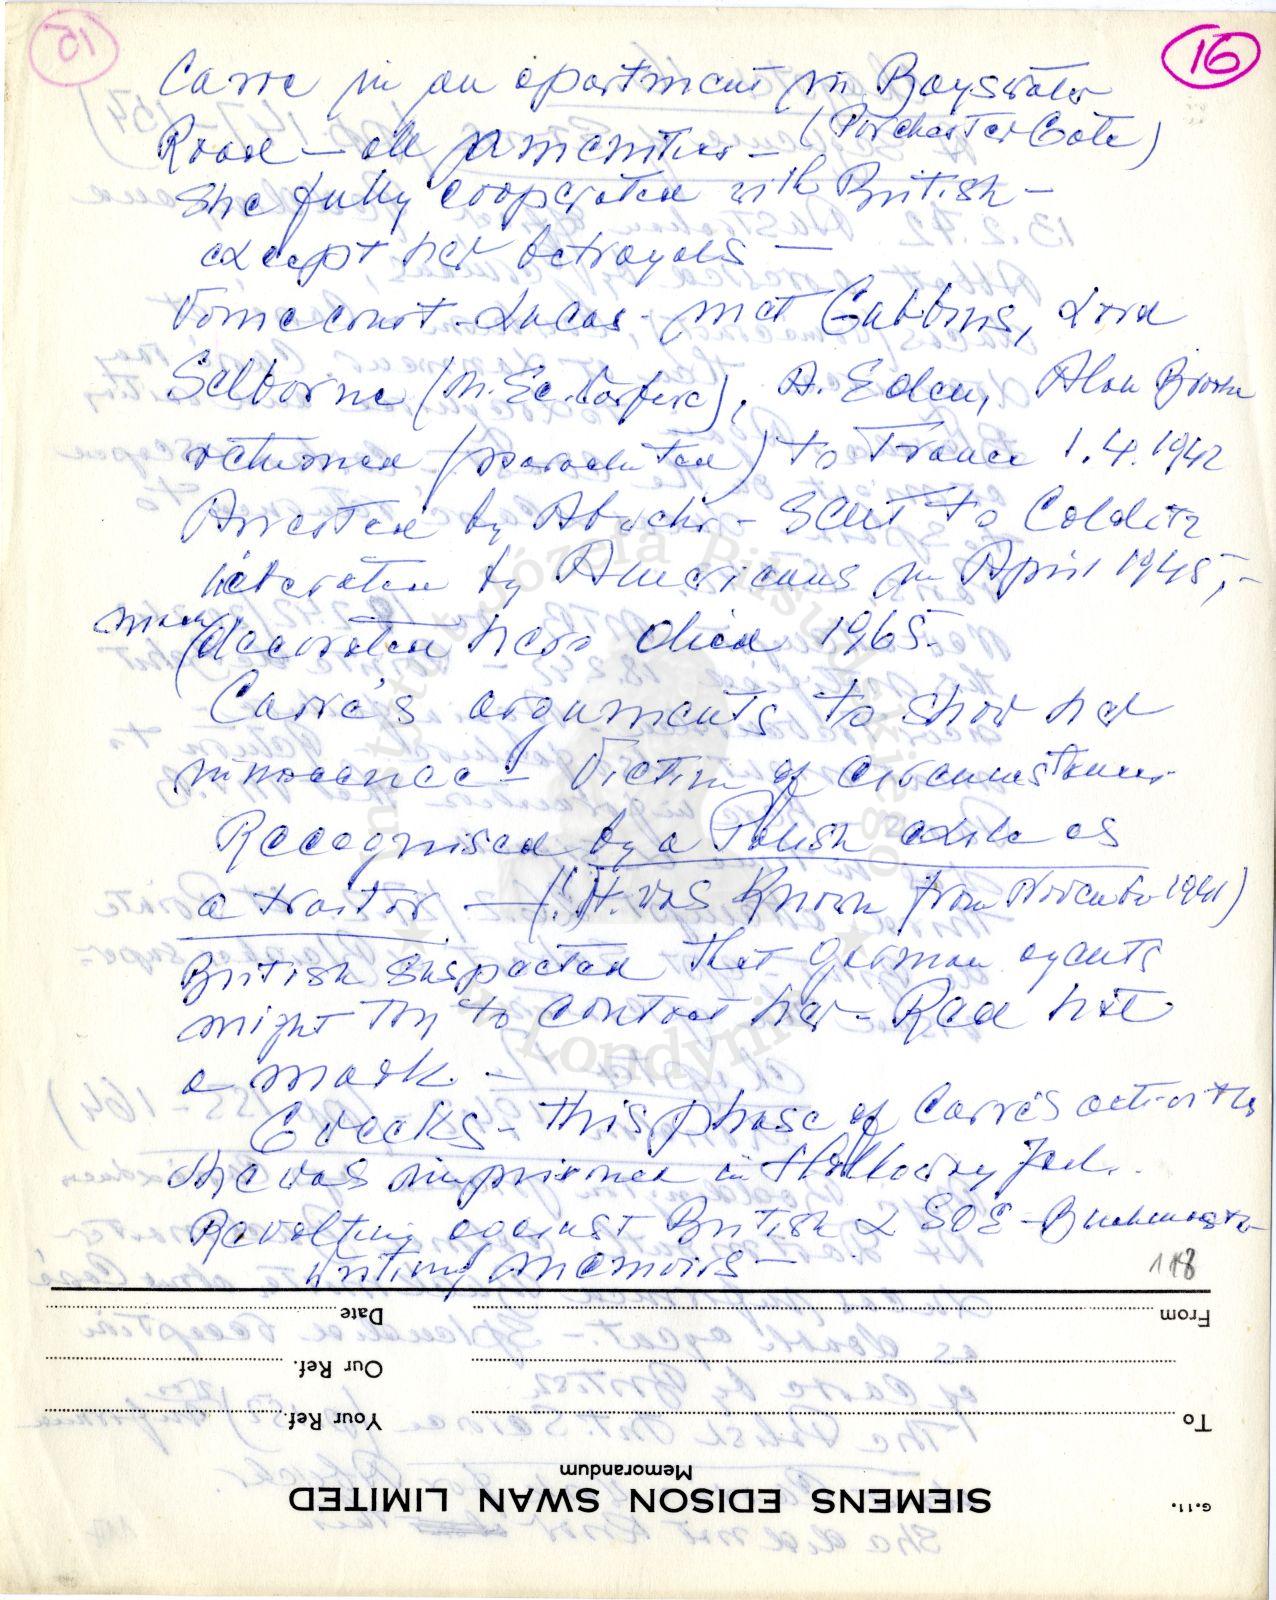 16
Carre in an apartment in Bayswater
(Porchester Gate)
Road — all amenities —
She fully cooperated with British —
except her betrayals —
Vomecourt - Lucas - met Gubbins, Lord
Selborne (M. Ec. Warfare), A. Eden, Alan Brook
returned (parachuted) to France 1.4.1942
Arrested by Abwehr - Sent to Colditz
liberated by Americans in April 1945, -
(decorated hero died 1965.
Carre's arguments to show her
innocence - Victim of circumstances
Recognised by a Polish exile as
a traitor — (!. It was known from November 1941)
British suspected that German agents
might try to contact her - Red hat
a mask. -
Checks - this phase of Carre's activities
she was imprisoned in Holloway Jail.
Revolting against British & SOE - Buckmaster
writing memoirs -
118
From
Date
Our Ref.
To
Your Ref.
Memorandum
SIEMENS EDISON SWAN LIMITED
G.11.
Instytut Józefa Piłsudskiego
w Londynie